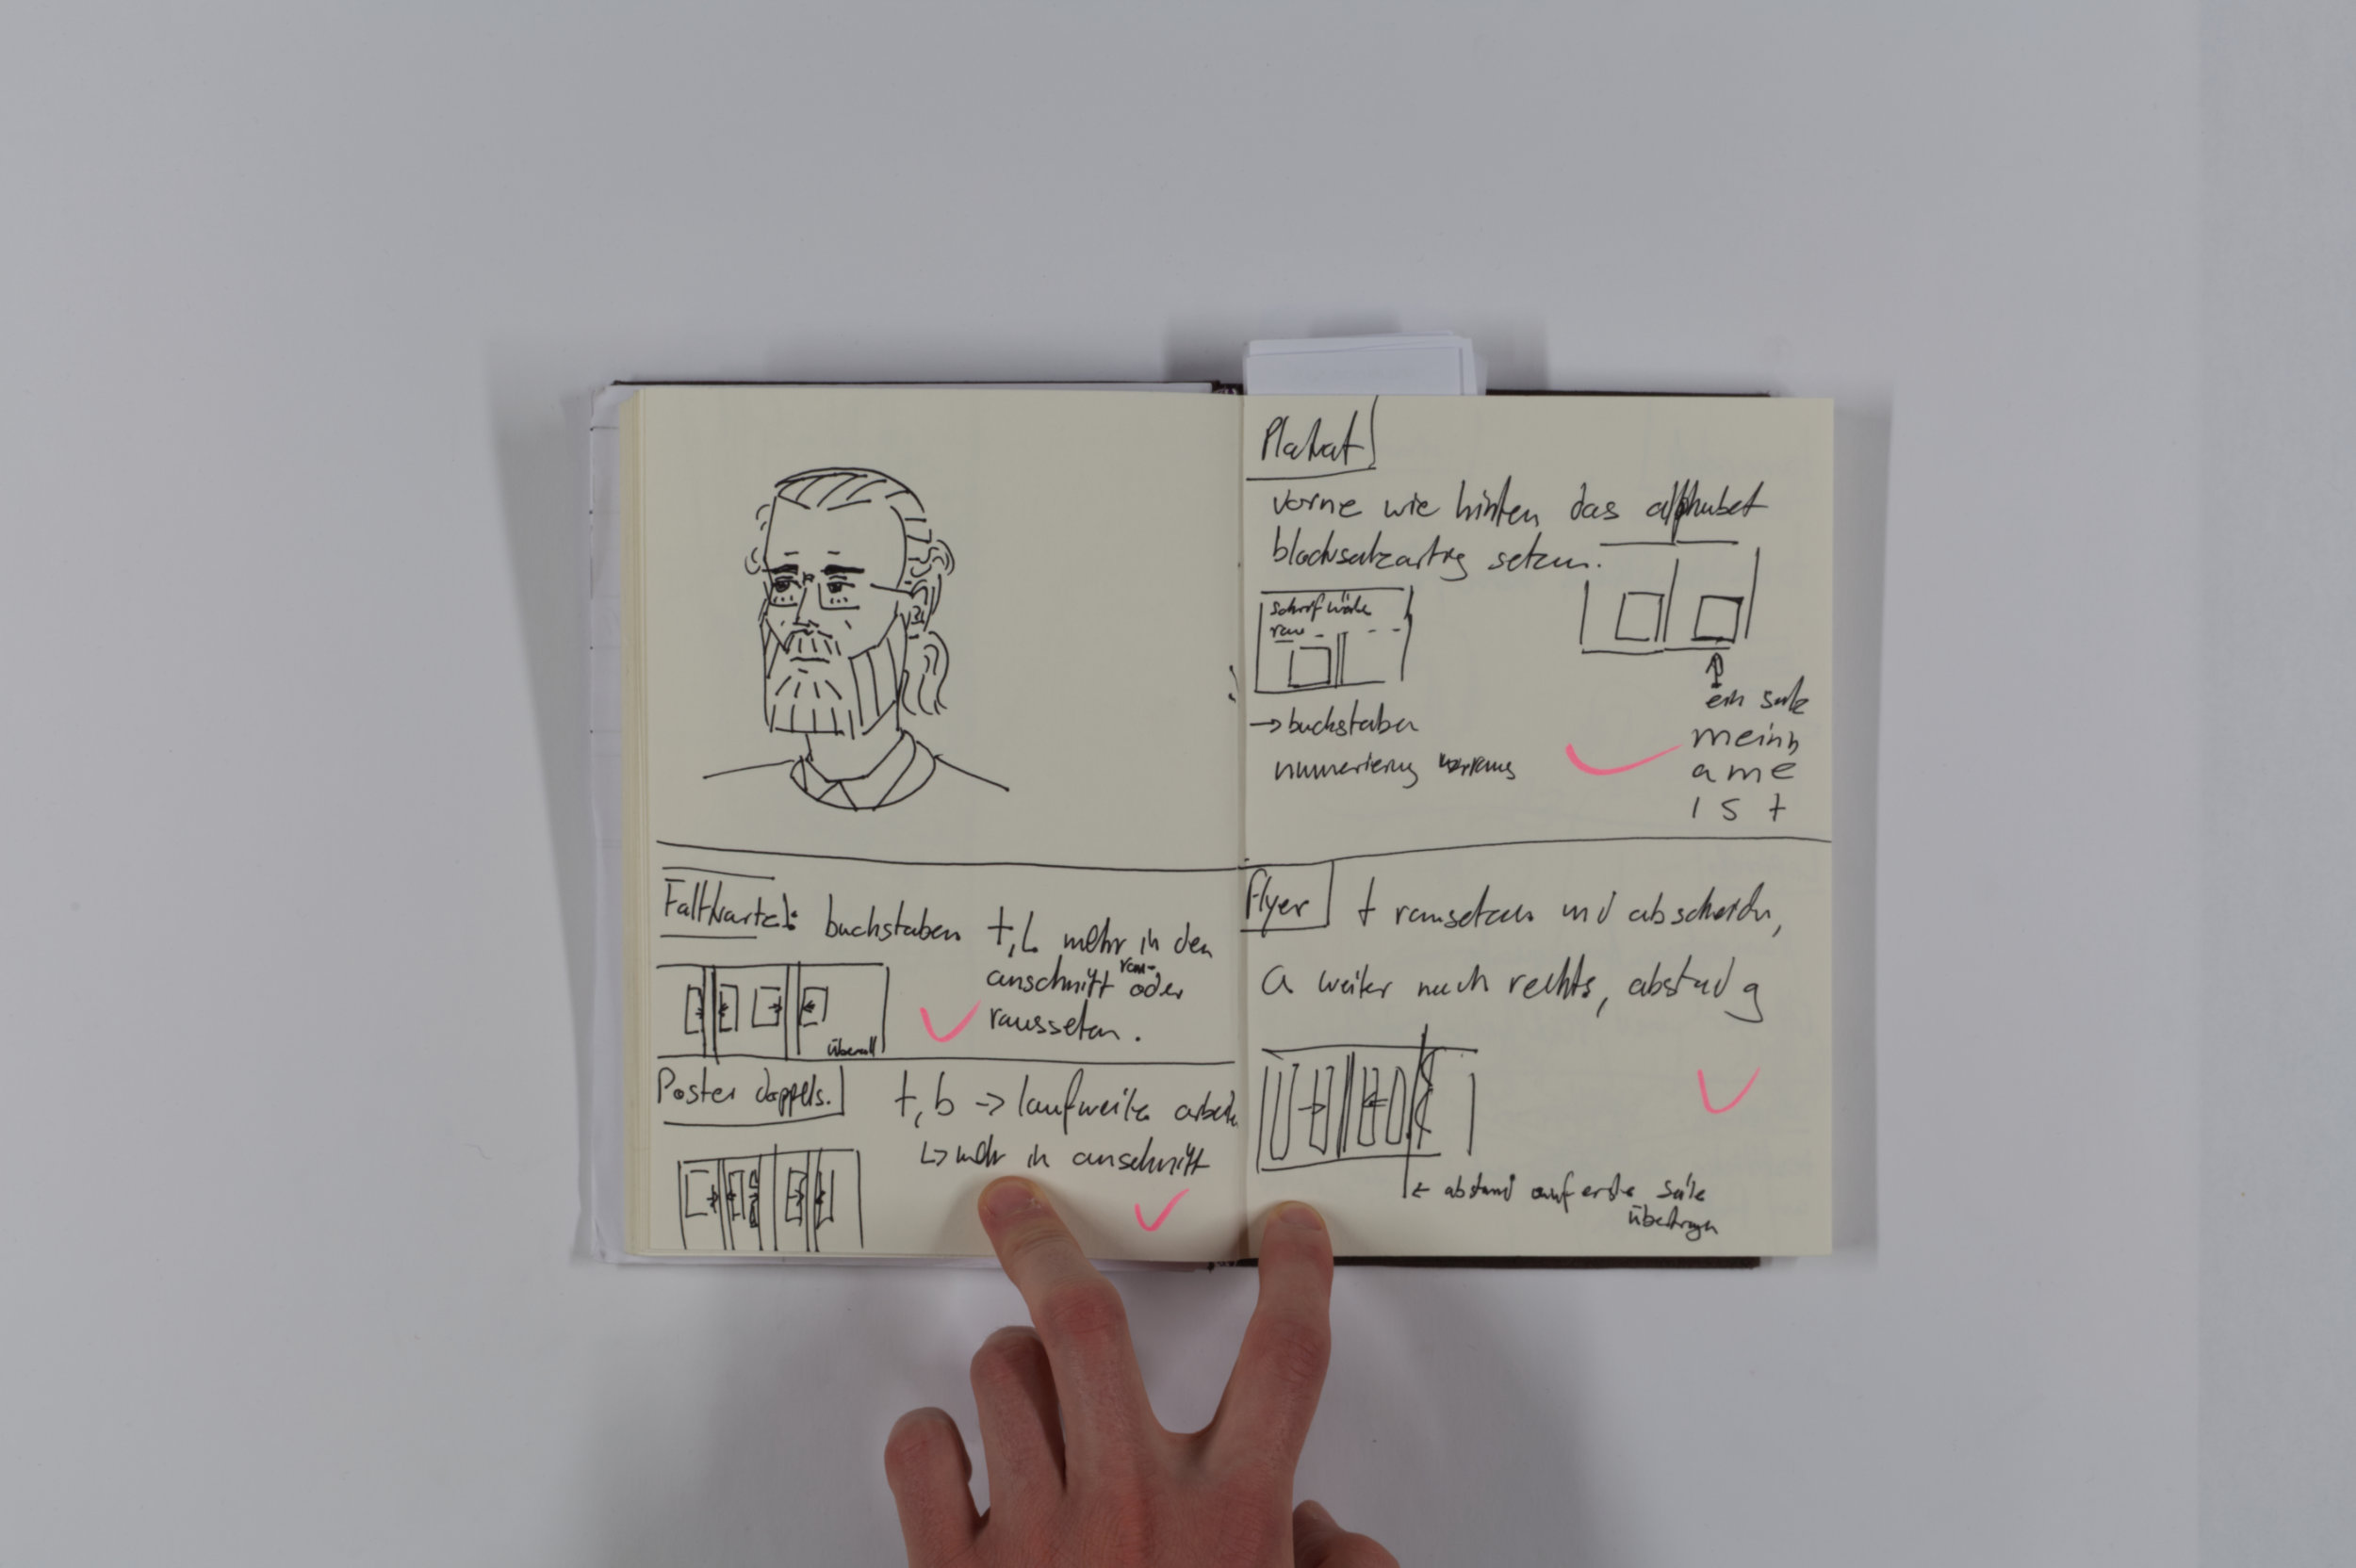 Faltkarte:
buchstaben t, L mehr in den
anschnitt oder
raussetzen.
überall
Poster doppels.
t, b → laufweite arbeiten
↳ mehr in anschnitt
Plakat
vorne wie hinten das alphabet
blocksatzartig setzen.
→ buchstaben
nummerierung
ein satz
meinn
ame
ist
Flyer
t raussetzen und abschneiden,
a weiter nach rechts, abstand g
← abstand auf erste Seite
übertragen